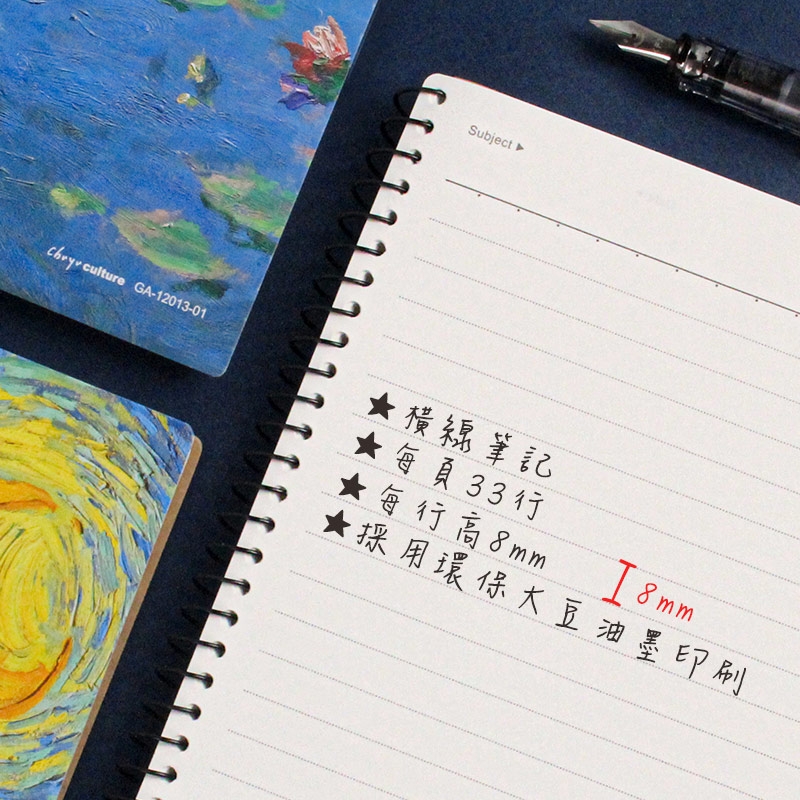 Subject ▶
chryr culture GA-12013-01
★橫線筆記
★每頁33行
★每行高8mm
8mm
★採用環保大豆油墨印刷